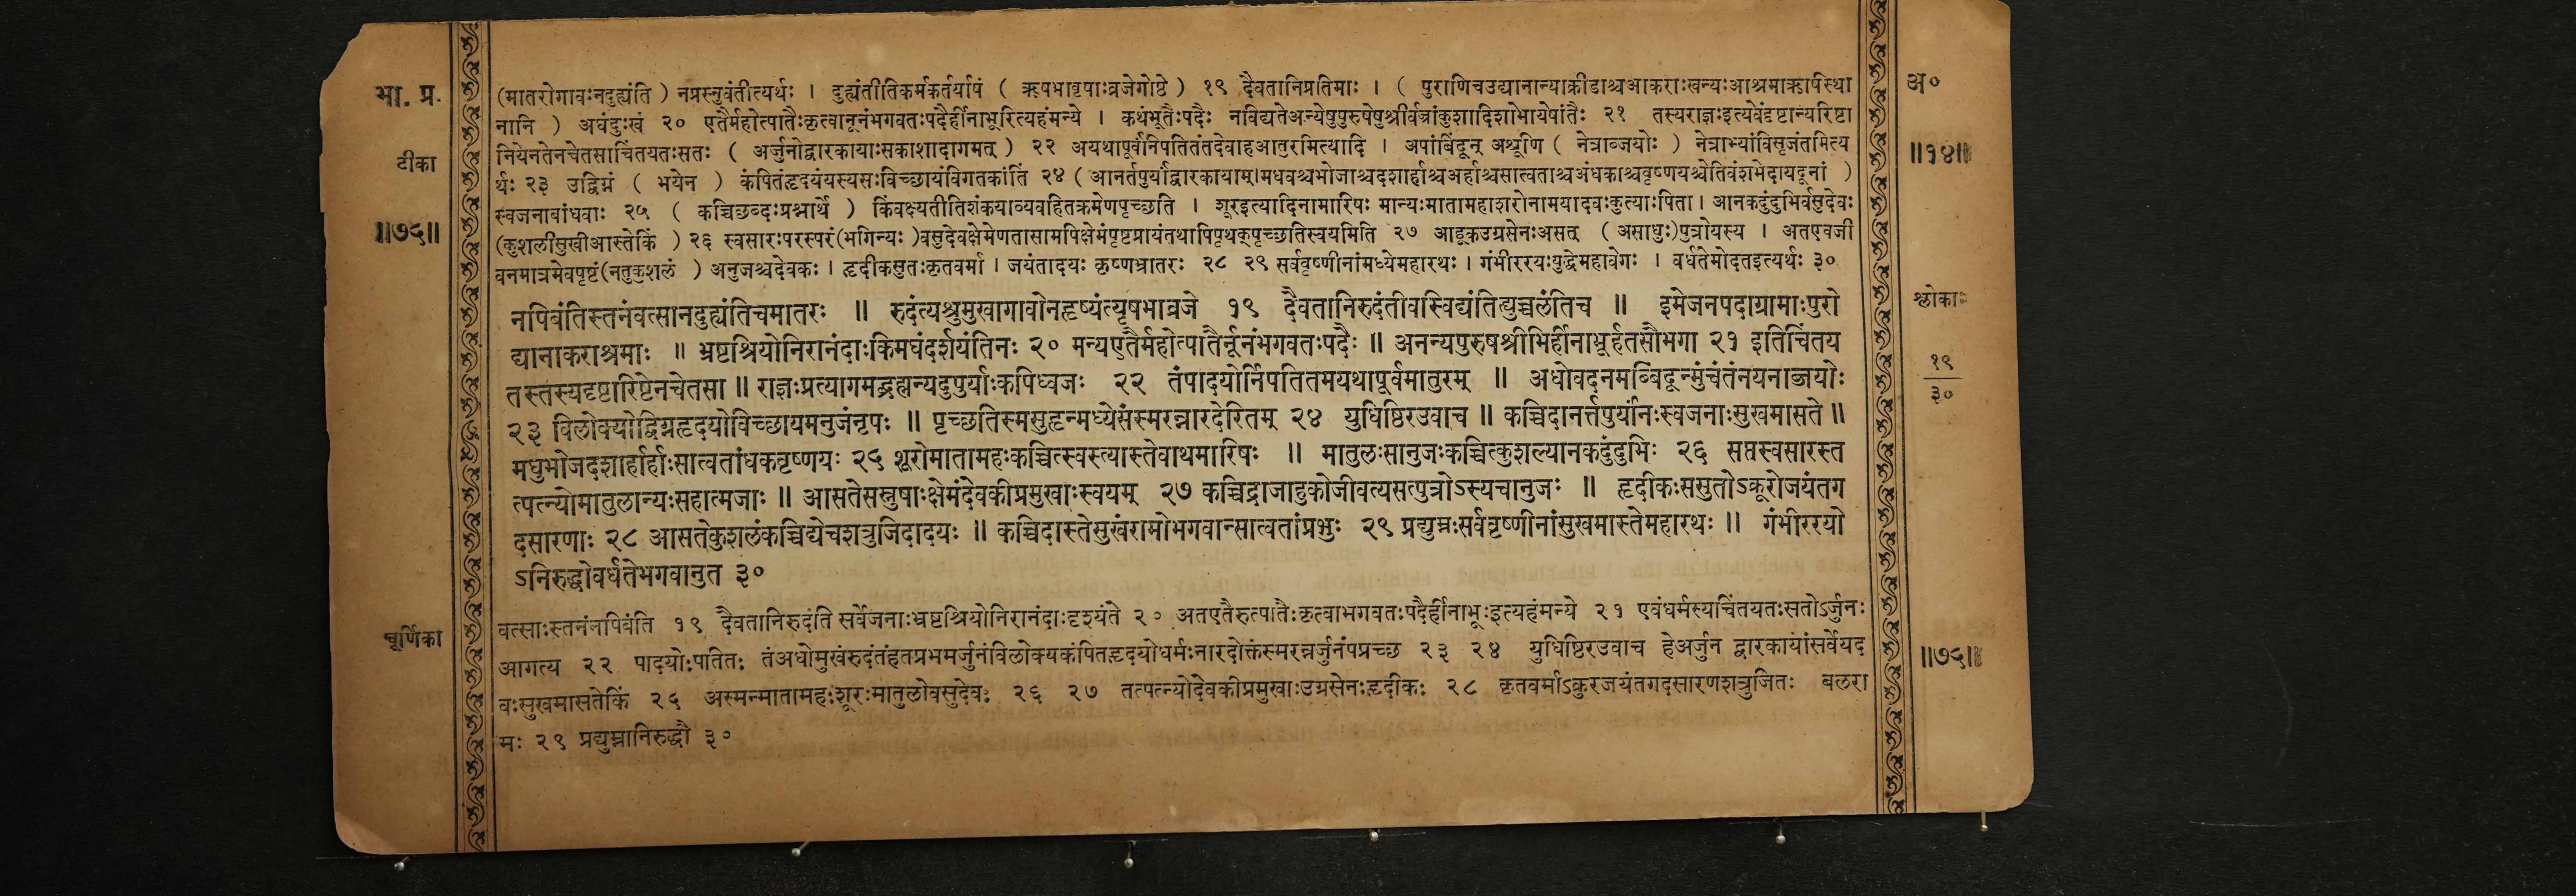 भा. प्र.
टीका
॥७५॥
चूर्णिका
(मातरोगावःनदुह्यंति) नप्रस्नुवंतीत्यर्थः । दुह्यंतीतिकर्मकर्तर्यार्षं ( ऋषभावृषाःव्रजेगोष्ठे ) १९ दैवतानिप्रतिमाः । ( पुराणिचउद्यानान्याक्रीडाश्चआकराःखन्यःआश्रमाऋषिस्था
नानि ) अघंदुःखं २० एतैर्महोत्पातैःकृत्वानूनंभगवतःपदैर्हीनाभूरित्यहंमन्ये । कथंभूतैःपदैः नविद्यतेअन्येषुपुरुषेषुश्रीर्वज्रांकुशादिशोभायेषांतैः २१ तस्यराज्ञःइत्येवंदृष्टान्यरिष्टा
नियेनतेनचेतसाचिंतयतःसतः ( अर्जुनोद्वारकायाःसकाशादागमत् ) २२ अयथापूर्वंनिपतितंतदेवाहआतुरमित्यादि । अपांबिंदून् अश्रूणि ( नेत्राब्जयोः ) नेत्राभ्यांविसृजंतमित्य
र्थः २३ उद्विग्नं ( भयेन ) कंपितंहृदयंयस्यसःविच्छायंविगतकांतिं २४ ( आनर्तपुर्यांद्वारकायाम्।मधवश्चभोजाश्चदशार्हाश्चअर्हाश्चसात्वताश्चअंधकाश्चवृष्णयश्चेतिवंशभेदायदूनां )
स्वजनाबांधवाः २५ ( कच्चिच्छब्दःप्रश्नार्थे ) किंवक्ष्यतीतिशंकयाव्यवहितक्रमेणपृच्छति । शूरइत्यादिनामारिषः मान्यःमातामहाशरोनामयादवःकुत्याःपिता। आनकदुंदुभिर्वसुदेवः
(कुशलीसुखीआस्तेकिं ) २६ स्वसारःपरस्परं(भगिन्यः)वसुदेवक्षेमेणतासामपिक्षेमंपृष्टप्रायंतथापिपृथक्पृच्छतिस्वयमिति २७ आहूकउग्रसेनःअसत् ( असाधुः)पुत्रोयस्य । अतएवजी
वनमात्रमेवपृष्टं(नतुकुशलं ) अनुजश्चदेवकः । हृदीकसुतःकृतवर्मा । जयंतादयः कृष्णभ्रातरः २८ २९ सर्ववृष्णीनांमध्येमहारथः । गंभीररयःयुद्धेमहावेगः । वर्धतेमोदतइत्यर्थः ३०
नपिबंतिस्तनंवत्सानदुह्यंतिचमातरः ॥ रुदंत्यश्रुमुखागावोनहृष्यंत्यृषभाव्रजे १९ दैवतानिरुदंतीवस्विद्यंतिह्युच्चलंतिच ॥ इमेजनपदाग्रामाःपुरो
द्यानाकराश्रमाः ॥ भ्रष्टश्रियोनिरानंदाःकिमघंदर्शयंतिनः २० मन्यएतैर्महोत्पातैर्नूनंभगवतःपदैः ॥ अनन्यपुरुषश्रीभिर्हीनाभूर्हतसौभगा २१ इतिचिंतय
तस्तस्यदृष्टारिष्टेनचेतसा ॥ राज्ञःप्रत्यागमद्ब्रह्मन्यदुपुर्याःकपिध्वजः २२ तंपादयोर्निपतितमयथापूर्वमातुरम् ॥ अधोवदनमब्बिंदून्मुंचंतंनयनाब्जयोः
२३ विलोक्योद्विग्नहृदयोविच्छायमनुजंनृपः ॥ पृच्छतिस्मसुहृन्मध्येसंस्मरन्नारदेरितम् २४ युधिष्ठिरउवाच ॥ कच्चिदानर्त्तपुर्यांनःस्वजनाःसुखमासते ॥
मधुभोजदशार्हार्हाःसात्वतांधकवृष्णयः २५ शूरोमातामहःकच्चित्स्वस्त्यास्तेवाथमारिषः ॥ मातुलःसानुजःकच्चित्कुशल्यानकदुंदुभिः २६ सप्तस्वसारस्त
त्पत्न्योमातुलान्यःसहात्मजाः ॥ आसतेसस्नुषाःक्षेमंदेवकीप्रमुखाःस्वयम् २७ कच्चिद्राजाहुकोजीवत्यसत्पुत्रोऽस्यचानुजः ॥ हृदीकःससुतोऽक्रूरोजयंतग
दसारणाः २८ आसतेकुशलंकच्चिद्येचशत्रुजिदादयः ॥ कच्चिदास्तेसुखंरामोभगवान्सात्वतांप्रभुः २९ प्रद्युम्नःसर्ववृष्णीनांसुखमास्तेमहारथः ॥ गंभीररयो
ऽनिरुद्धोवर्धतेभगवानुत ३०
वत्साःस्तनंनपिबंति १९ दैवतानिरुदंति सर्वेजनाःभ्रष्टश्रियोनिरानंदाःदृश्यंते २० अतएतैरुत्पातैःकृत्वाभगवतःपदैर्हीनाभूःइत्यहंमन्ये २१ एवंधर्मस्यचिंतयतःसतोऽर्जुनः
आगत्य २२ पादयोःपतितः तंअधोमुखंरुदंतंहतप्रभमर्जुनंविलोक्यकंपितहृदयोधर्मःनारदोक्तंस्मरन्नर्जुनंपप्रच्छ २३ २४ युधिष्ठिरउवाच हेअर्जुन द्वारकायांसर्वेयद
वःसुखमासतेकिं २५ अस्मन्मातामहःशूरःमातुलोवसुदेवः २६ २७ तत्पत्न्योदेवकीप्रमुखाःउग्रसेनःहृदीकः २८ कृतवर्माऽक्रुरजयंतगदसारणशत्रुजितः बलरा
मः २९ प्रद्युम्नानिरुद्धौ ३०
अ०
॥१४॥
श्लोकाः
१९
३०
॥७५॥